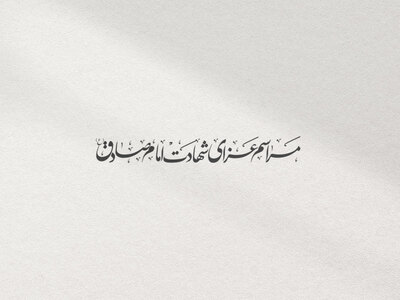 مراسم عزای شهادت امام صادق